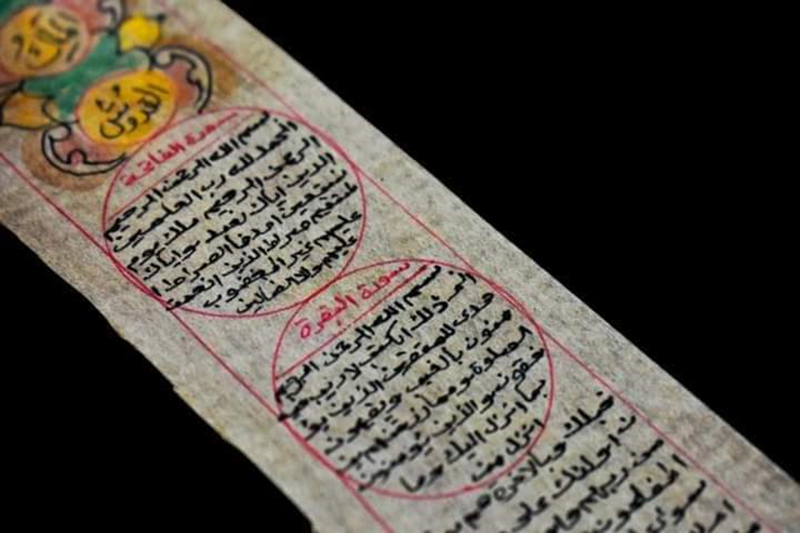 الملك
القدوس
سورة الفاتحة
بسم الله الرحمن الرحيم
والحمد لله رب العلمين
الرحمن الرحيم ملك يوم
الدين اياك نعبد واياك
نستعين اهدنا الصراط ا
لمستقيم صراط الذين انعمت
عليهم غير المغضوب
عليهم ولا الضالين
سورة البقرة
بسم الله الرحمن الرحيم
الم ذلك الكتب لا ريب فيه
هدى للمتقين الذين يؤ
منون بالغيب ويقيمون
الصلوة ومما رزقنهم ين
فقون والذين يؤمنون
بما انزل اليك وما
انزل من
قبلك وبالاخرة هم يو
ن اولئك على
من ربهم واو
المفلحون